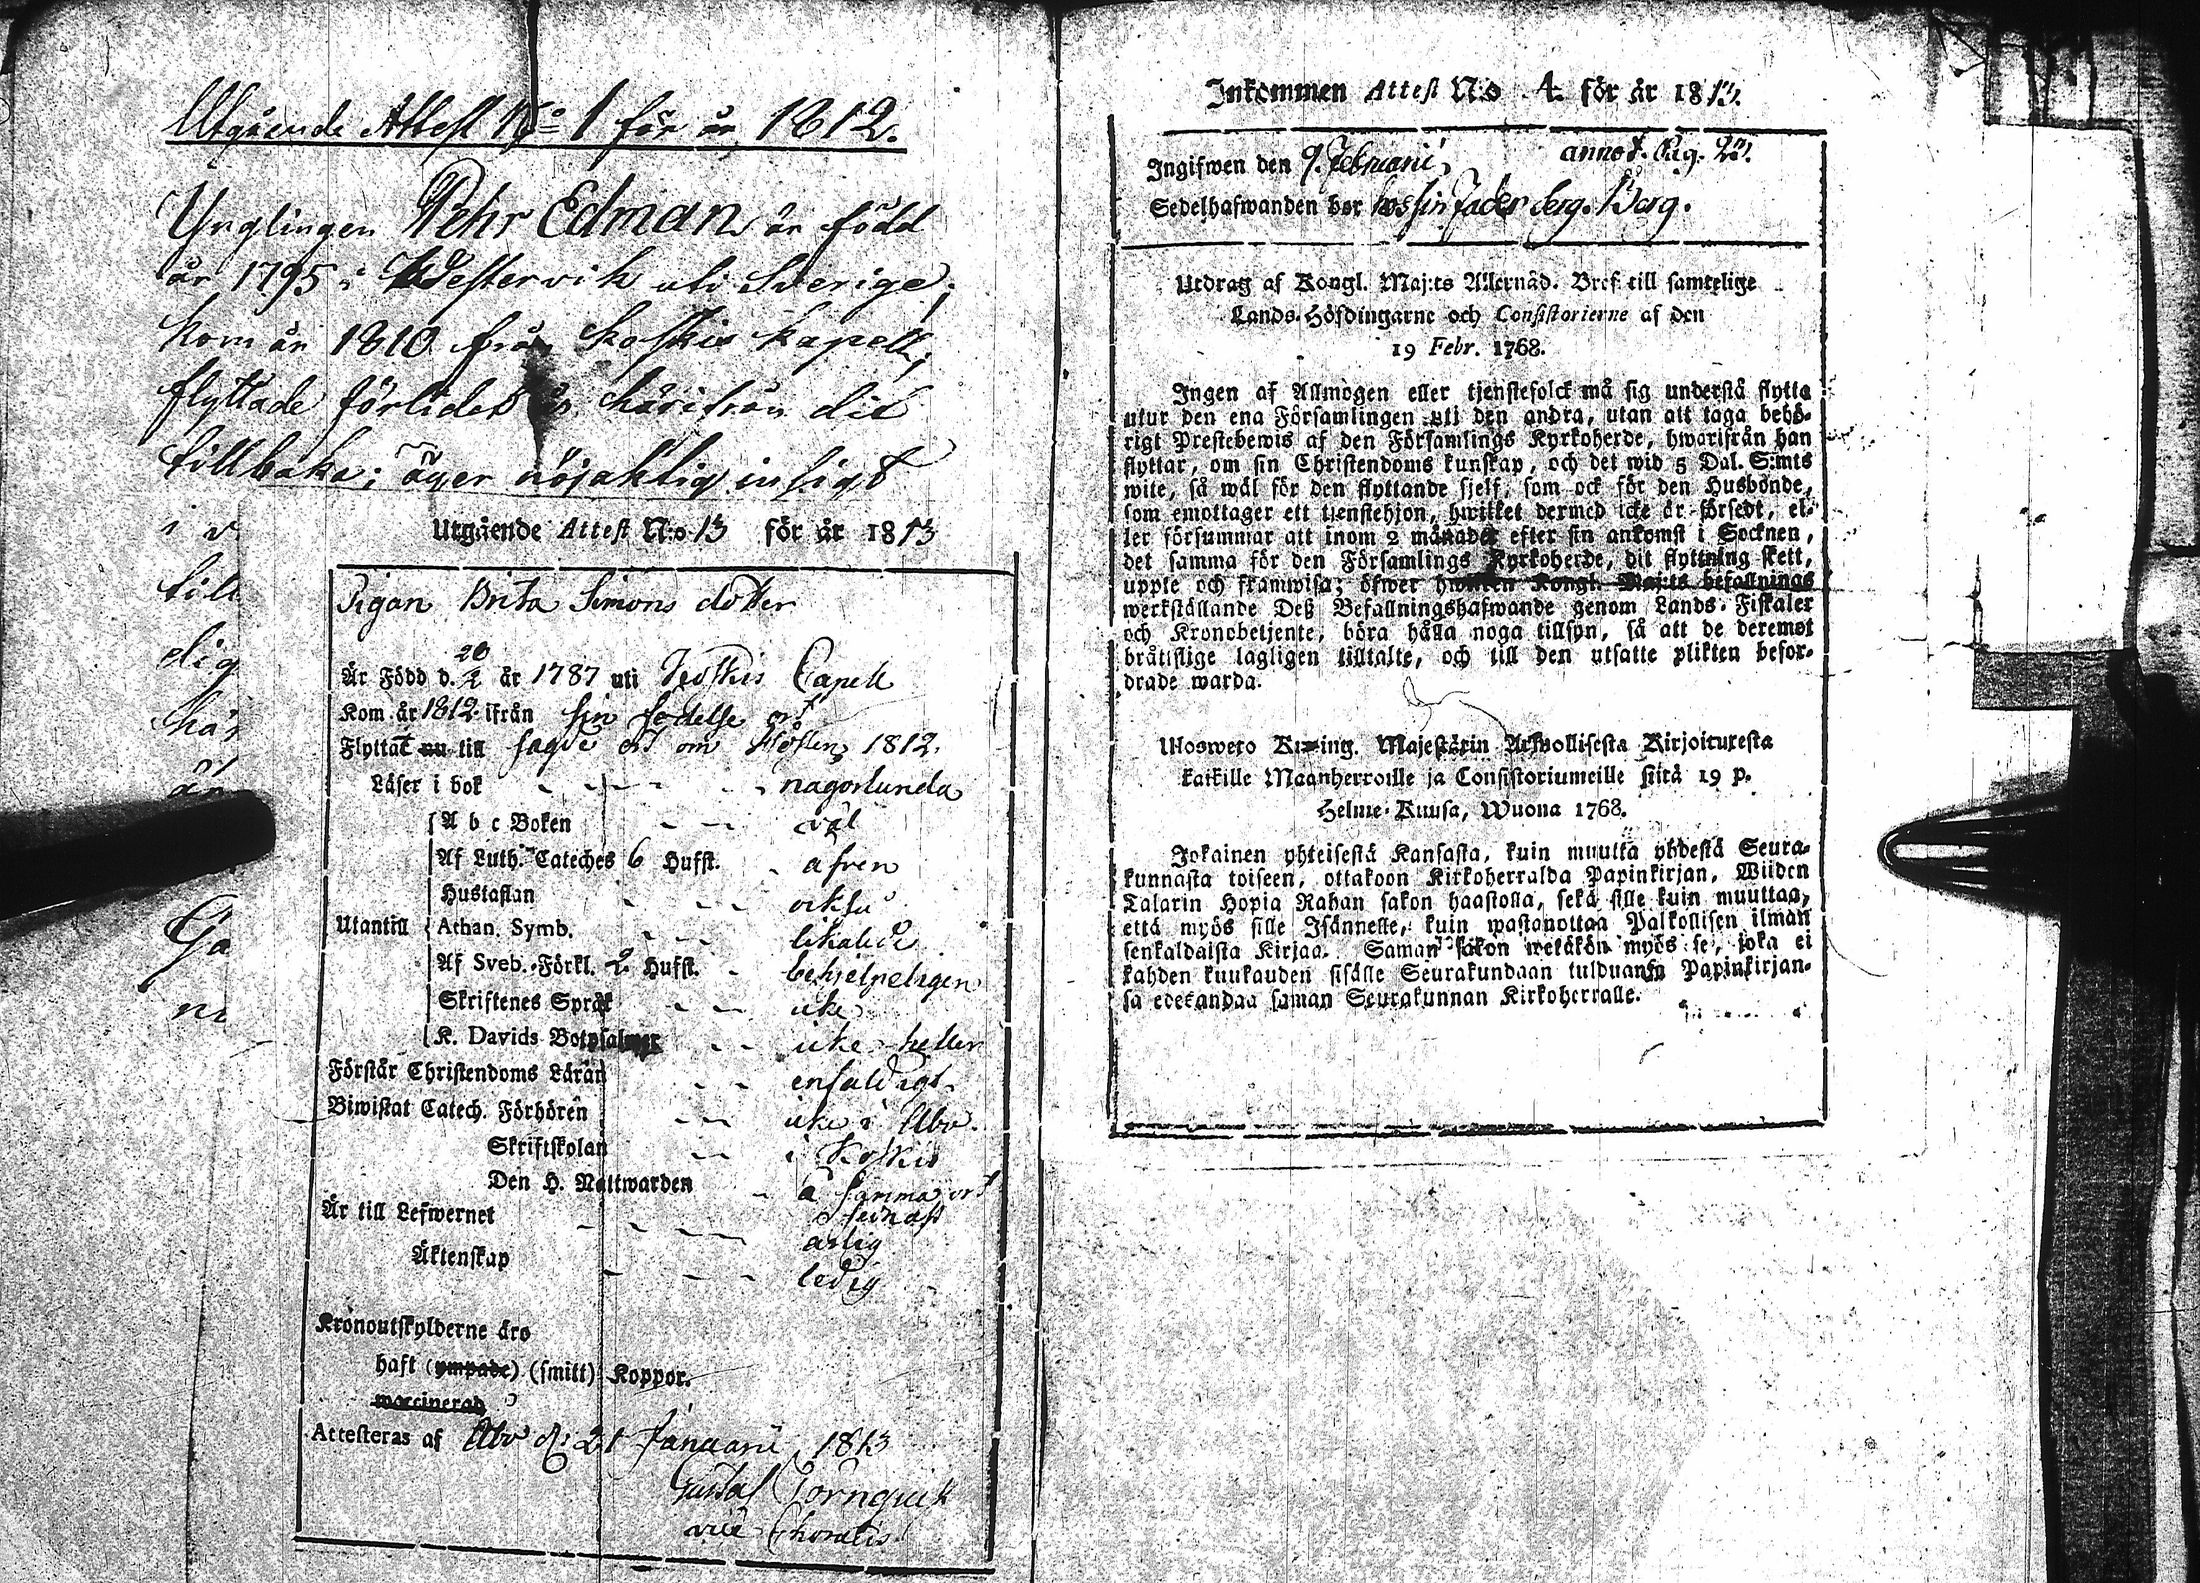 Utgående Attest No 1 för år 1812.
Ynglingen Pehr Edman är född
år 1795 i Westervik uti Sverige,
kom år 1810 från Koskis kapell,
flyttade förledet år härifrån dit
tillbaka; äger nöjaktig insigt
i v
till
elig
här
Ga
Utgående Attest N:o 13 för år 1813
Pigan Brita Simons dotter
20
Är Född d. 2 år 1787 uti Koskis Capell
Kom år 1812 ifrån sin födelse ort
Flyttat nu till sagde ort om Hösten 1812.
Läser i bok - - - - någorlunda
A b c Boken - - väl
Af Luth. Cateches 6 Hufst. - äfven
Hustaflan - - - också
Utantill Athan. Symb. - - - likaledes
Af Sveb. Förkl. 2 Hufst. - behjelpeligen
Skriftenes Språk - - icke
K. Davids Botpsalmer - - icke heller
Förstår Christendoms Läran - - enfaldigt
Biwistat Catech. Förhören - - icke i Åbo.
Skriftskolan - - i Koskis
Den H. Nattwarden - å samma ort
Är till Lefwernet - - - - ärlig
Äktenskap - - - - ledig
Kronoutskylderne äro
haft (ympade) (smitt) Koppor.
waccinerad
Attesteras af Åbo d: 21 Januarii 1813
Gustaf Tornqvist
vice
Inkommen Attest N:o 4. för år 1813.
Ingifwen den 9. Februarii, annot. Pag. 25.
Sedelhafwanden bor hos sin Fader Serg. Berg.
Utdrag af Kongl. Maj:ts Allernåd. Bref till samtelige
Lands-Höfdingarne och Consistorierne af den
19 Febr. 1768.
Ingen af Allmogen eller tjenstefolck må sig understå flytta
utur den ena Församlingen uti den andra, utan att taga behö-
rigt Prestebewis af den Församlings Kyrkoherde, hwarifrån han
flyttar, om sin Christendoms kunskap, och det wid 5 Dal. S:mts
wite, så wäl för den flyttande sjelf, som ock för den Husbonde,
som emottager ett tjenstehjon, hwilket dermed icke är försedt, el-
ler försummar att inom 2 månader efter sin ankomst i Socknen,
det samma för den Församlings Kyrkoherde, dit flyttning skett,
uppte och framwisa; öfwer hwilken Kongl. Maj:ts befallnings
werkställande Deß Befallningshafwande genom Lands-Fiskaler
och Kronobetjente, böra hålla noga tillsyn, så att de deremot
bråtislige lagligen tilltalte, och till den utsatte plikten befor-
drade warda.
Uloswero Kuning. Majestärin Armollisesta Kirjoituxesta
kaikille Maanherroille ja Consistoriumeille siitä 19 p.
Helme-Kuusa, Wuona 1768.
Jokainen yhteisestä Kansasta, kuin muutta yhdestä Seura-
kunnasta toiseen, ottakoon Kirkoherralda Papinkirjan, Wiiden
Talarin Hopia Rahan sakon haastolla, sekä sille kuin muuttaa,
että myös sille Isännelle, kuin wastanottaa Palkollisen ilman
senkaldaista Kirjaa. Saman sakon wetäkön myös se, joka ei
kahden kuukauden sisälle Seurakundaan tulduansa Papinkirjan-
sa edesandaa saman Seurakunnan Kirkoherralle.